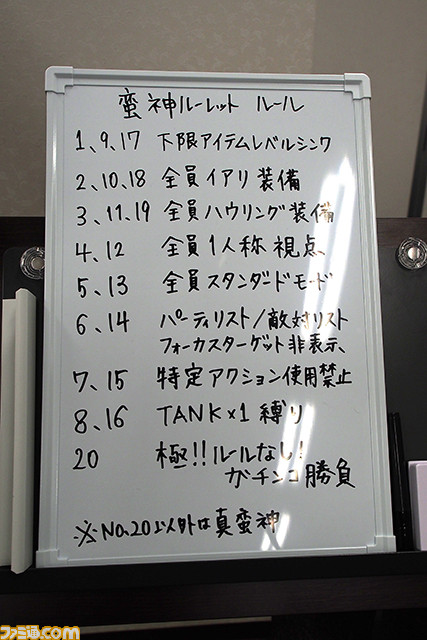 蛮神ルーレット ルール
1、9、17 下限アイテムレベルシンク
2、10、18 全員イアリ装備
3、11、19 全員ハウリング装備
4、12 全員1人称視点
5、13 全員スタンダードモード
6、14 パーティリスト/敵対リスト
フォーカスターゲット非表示、
7、15 特定アクション使用禁止
8、16 TANK×1縛り
20 極!!ルールなし!
ガチンコ勝負
※No.20以外は真蛮神
ファミ通.com